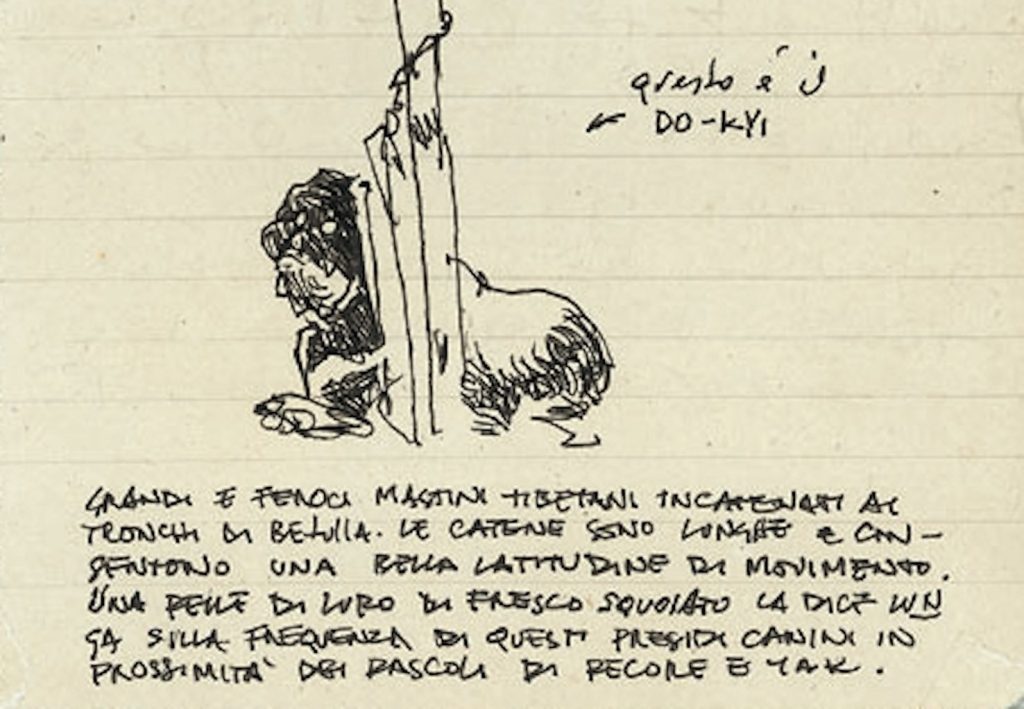 questo è il
DO-KYI
GRANDI E FEROCI MASTINI TIBETANI INCATENATI AI
TRONCHI DI BETULLA. LE CATENE SONO LUNGHE E CON-
SENTONO UNA BELLA LATITUDINE DI MOVIMENTO.
UNA PELLE DI LUPO DI FRESCO SQUOIATO LA DICE LUN
GA SULLA FREQUENZA DI QUESTI PRESIDI CANINI IN
PROSSIMITA' DEI PASCOLI DI PECORE E YAK.